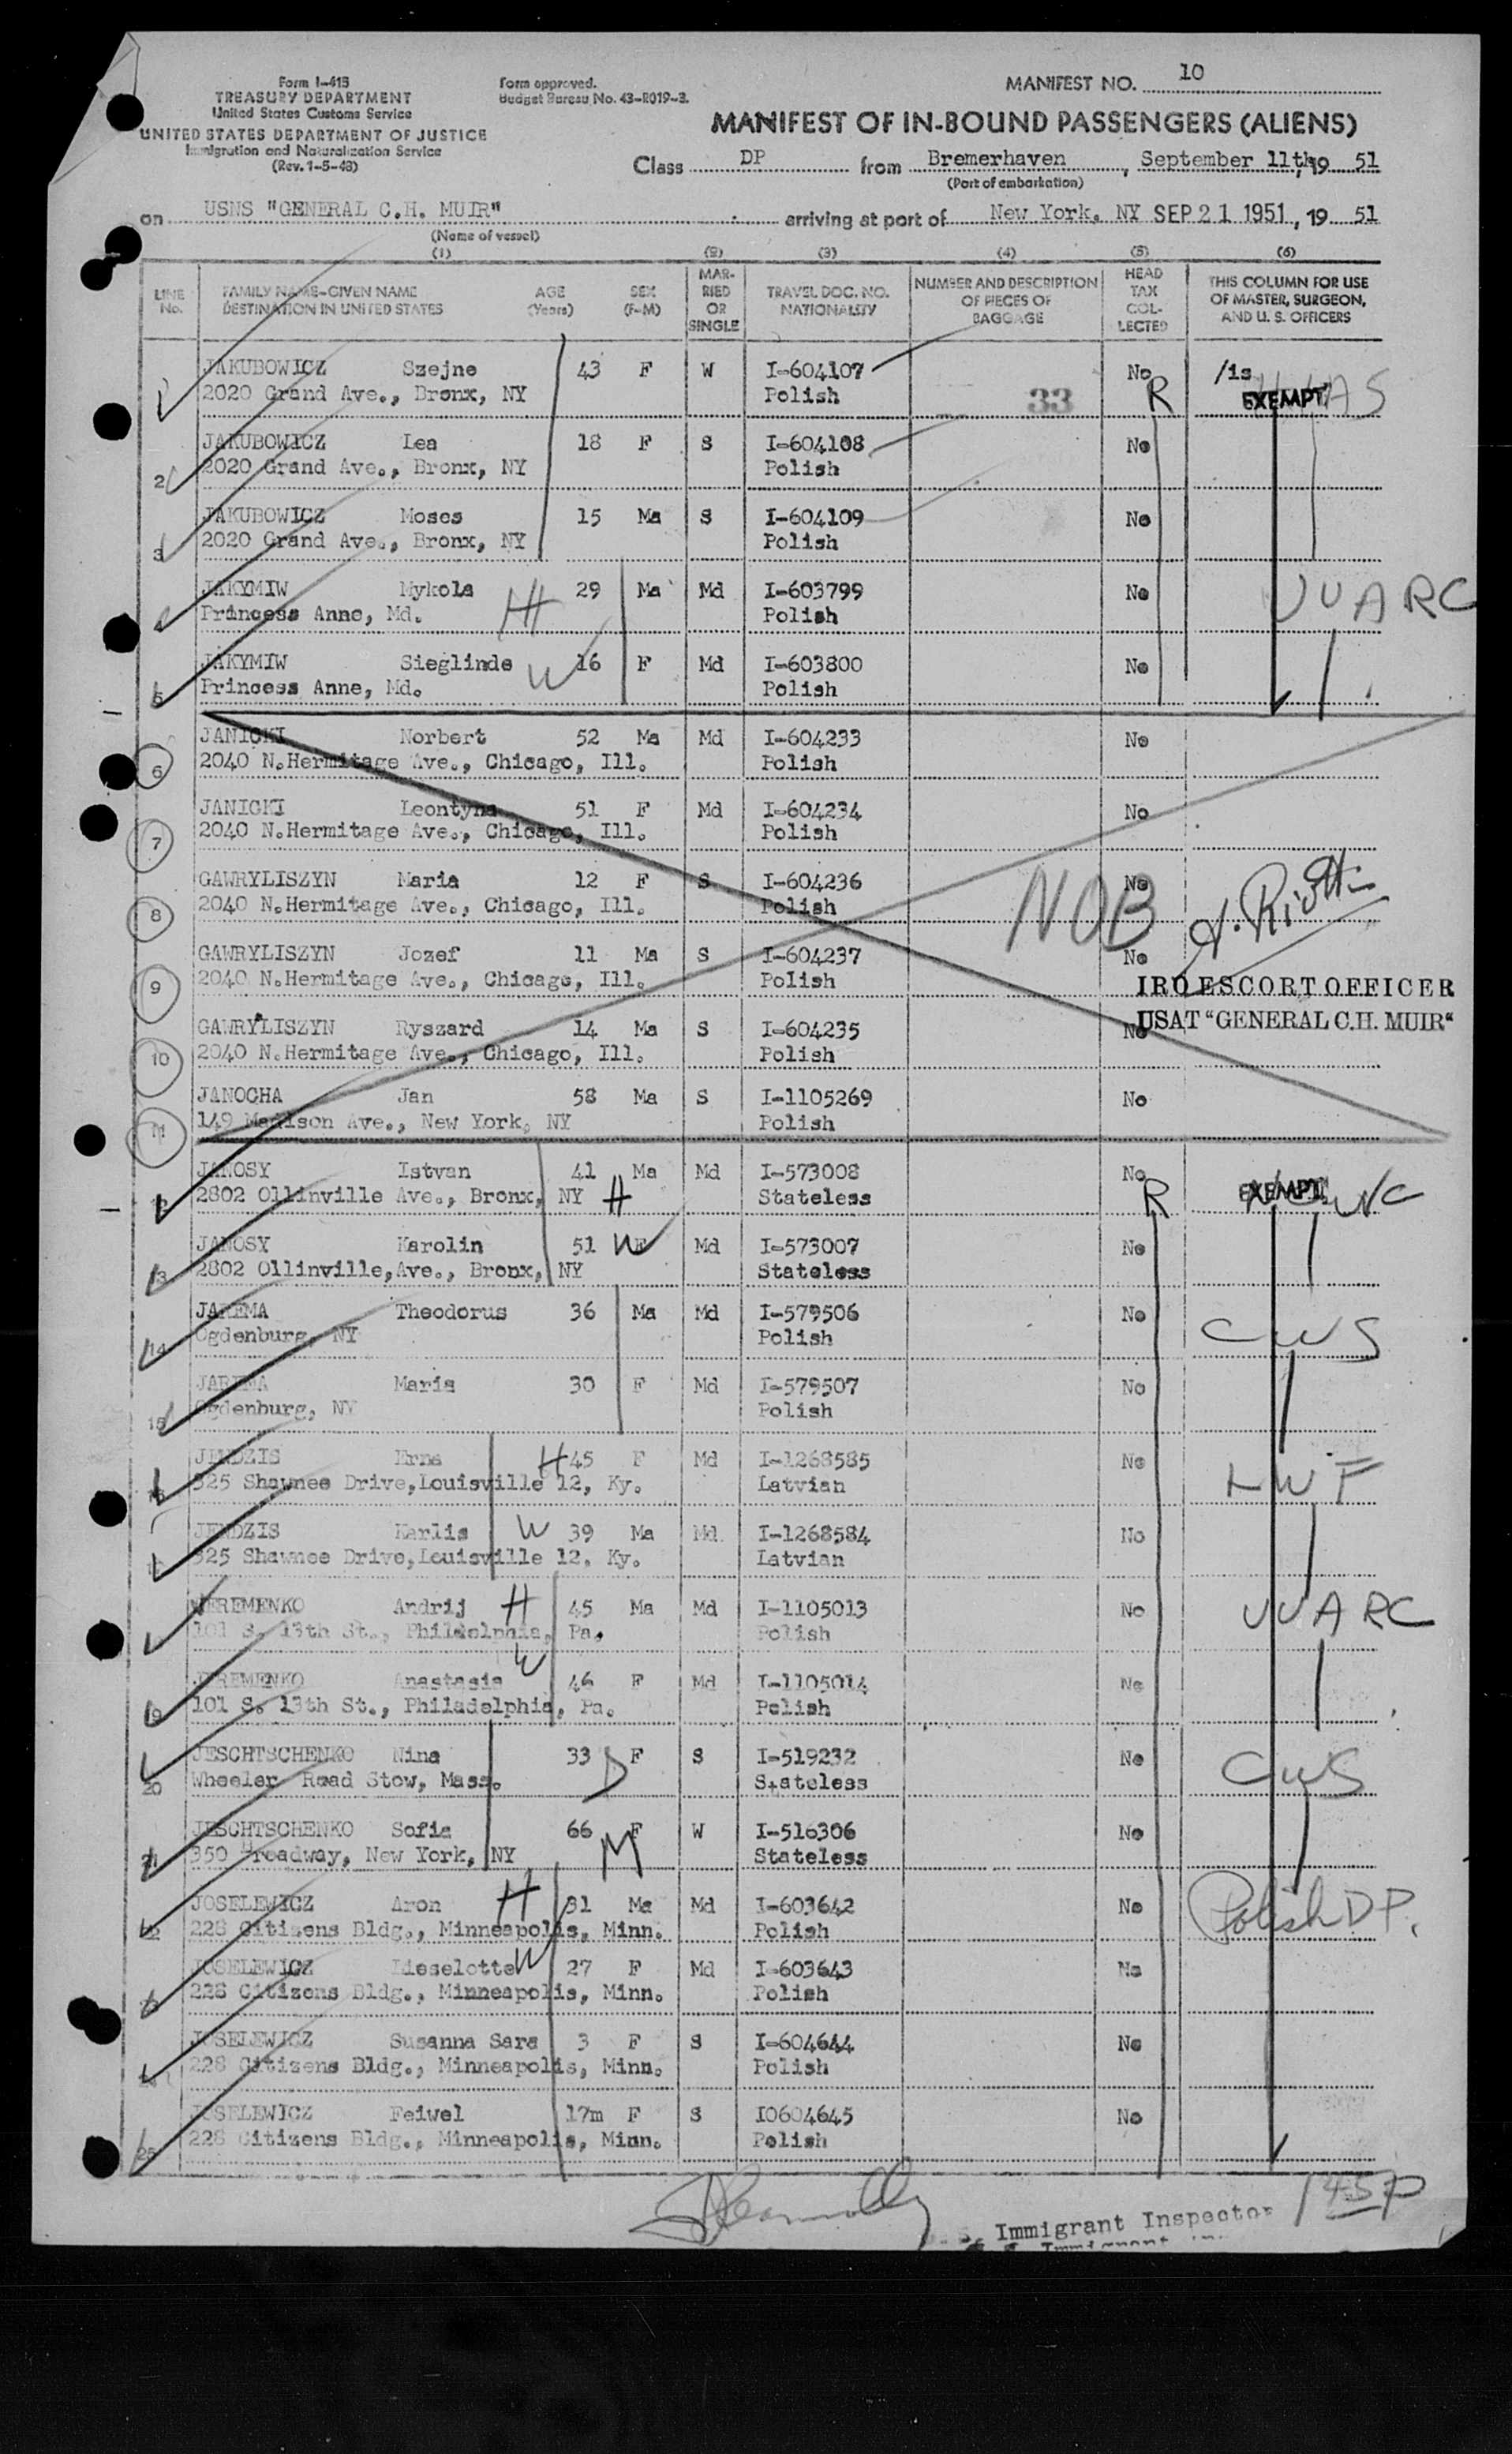 Form I-415
TREASURY DEPARTMENT
United States Customs Service
UNITED STATES DEPARTMENT OF JUSTICE
Immigration and Naturalization Service
(Rev. 1-5-48)
Form approved.
Budget Bureau No. 43-R019-3.
MANIFEST NO. 10
MANIFEST OF IN-BOUND PASSENGERS (ALIENS)
Class DP from Bremerhaven, September 11th, 19 51
(Port of embarkation)
on USNS "GENERAL C.H. MUIR" arriving at port of New York, NY SEP 21 1951, 19 51
(Name of vessel)
(1) (2) (3) (4) (5) (6)
LINE No. FAMILY NAME-GIVEN NAME DESTINATION IN UNITED STATES AGE (Years) SEX (F-M) MARRIED OR SINGLE TRAVEL DOC. NO. NATIONALITY NUMBER AND DESCRIPTION OF PIECES OF BAGGAGE HEAD TAX COLLECTED THIS COLUMN FOR USE OF MASTER, SURGEON, AND U. S. OFFICERS
1 JAKUBOWICZ Szejne 43 F W I-604107 No /1s
2020 Grand Ave., Bronx, NY Polish 33 R EXEMPT HIAS
2 JAKUBOWICZ Lea 18 F S I-604108 No
2020 Grand Ave., Bronx, NY Polish
3 JAKUBOWICZ Moses 15 Ma S I-604109 No
2020 Grand Ave., Bronx, NY Polish
4 JAKYMIW Mykola H 29 Ma Md I-603799 No UUARC
Princess Anne, Md. Polish
5 JAKYMIW Sieglinde W 16 F Md I-603800 No
Princess Anne, Md. Polish
6 JANICKI Norbert 52 Ma Md I-604233 No
2040 N.Hermitage Ave., Chicago, Ill. Polish
7 JANICKI Leontyna 51 F Md I-604234 No
2040 N.Hermitage Ave., Chicago, Ill. Polish
8 GAWRYLISZYN Maria 12 F S I-604236 No
2040 N.Hermitage Ave., Chicago, Ill. Polish NOB
9 GAWRYLISZYN Jozef 11 Ma S I-604237 No
2040 N.Hermitage Ave., Chicago, Ill. Polish IRO ESCORT OFFICER
10 GAWRYLISZYN Ryszard 14 Ma S I-604235 No USAT "GENERAL C.H. MUIR"
2040 N.Hermitage Ave., Chicago, Ill. Polish
11 JANOCHA Jan 58 Ma S I-1105269 No
149 Madison Ave., New York, NY Polish
12 JANOSY Istvan 41 Ma Md I-573008 No
2802 Ollinville Ave., Bronx, NY H Stateless R EXEMPT
13 JANOSY Karolin 51 W F Md I-573007 No
2802 Ollinville,Ave., Bronx, NY Stateless
14 JAREMA Theodorus 36 Ma Md I-579506 No CWS
Ogdenburg, NY Polish
15 JAREMA Maria 30 F Md I-579507 No
Ogdenburg, NY Polish
JENDZIS Erna H 45 F Md I-1268585 No LWF
325 Shawnee Drive,Louisville 12, Ky. Latvian
JENDZIS Karlis W 39 Ma Md I-1268584 No
325 Shawnee Drive,Louisville 12, Ky. Latvian
JEREMENKO Andrij H 45 Ma Md I-1105013 No UUARC
101 S. 13th St., Philadelphia, Pa. Polish
19 JEREMENKO Anastasia W 46 F Md I-1105014 No
101 S. 13th St., Philadelphia, Pa. Polish
20 JESCHTSCHENKO Nina 33 D F S I-519232 No CWS
Wheeler Road Stow, Mass. Stateless
21 JESCHTSCHENKO Sofia 66 M F W I-516306 No
350 Broadway, New York, NY Stateless
22 JOSELEWICZ Aron H 31 Ma Md I-603642 No Polish DP.
228 Citizens Bldg., Minneapolis, Minn. Polish
23 JOSELEWICZ Lieselotte W 27 F Md I-603643 No
228 Citizens Bldg., Minneapolis, Minn. Polish
24 JOSELEWICZ Susanna Sara 3 F S I-604644 No
228 Citizens Bldg., Minneapolis, Minn. Polish
25 JOSELEWICZ Feiwel 17m F S I0604645 No
228 Citizens Bldg., Minneapolis, Minn. Polish
Immigrant Inspector